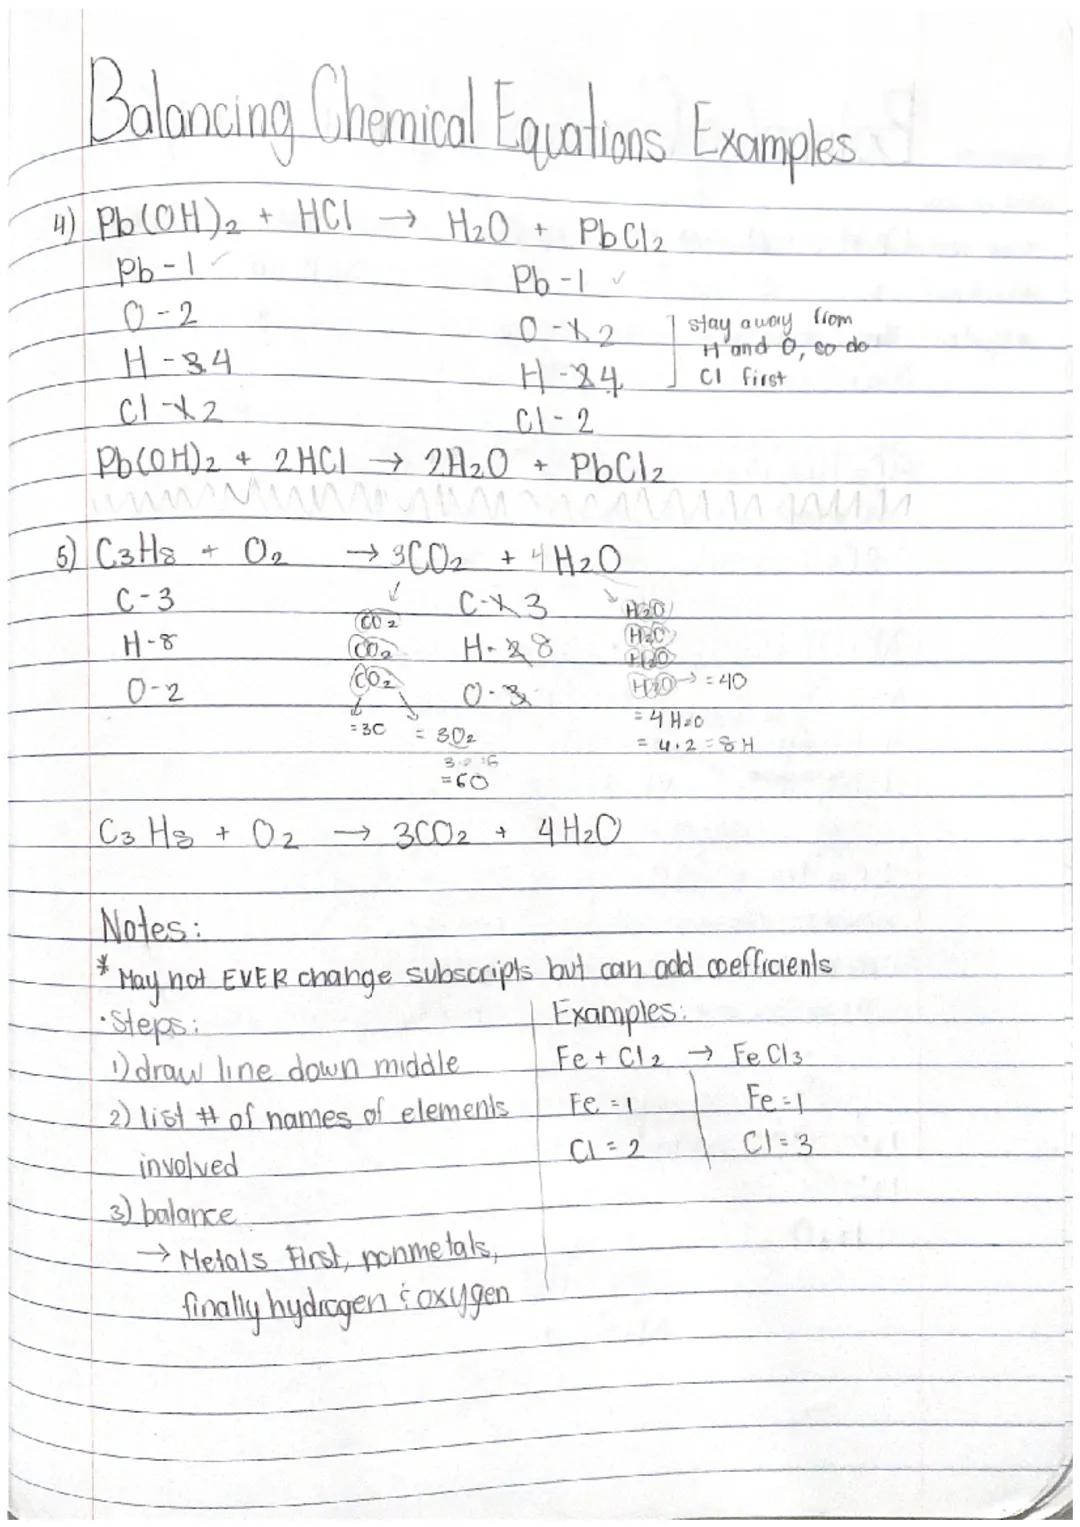 Balancing Chemical Equations Examples
4) Pb(OH)₂ + HCl → H₂O + PbCl₂
Pb - 1 ✓ Pb - 1 ✓
O - 2 O - 1 2
H - 3 4 H - 2 4
Cl - 1 2 Cl - 2
stay away from
H and O, so do
Cl first
Pb(OH)₂ + 2HCl → 2H₂O + PbCl₂
5) C₃H₈ + O₂ → 3CO₂ + 4H₂O
C - 3 C - 1 3
H - 8 H - 2 8
O - 2 O - 3
CO₂
CO₂
CO₂
= 3C = 3O₂
= 6O
H₂O
H₂O
H₂O
H₂O → = 4O
= 4H₂O
= 4·2 = 8H
C₃H₈ + O₂ → 3CO₂ + 4H₂O
Notes:
* May not EVER change subscripts but can add coefficients
• Steps:
1) draw line down middle
2) list # of names of elements
involved
3) balance
→ Metals First, nonmetals,
finally hydrogen & oxygen
Examples:
Fe + Cl₂ → FeCl₃
Fe = 1 Fe = 1
Cl = 2 Cl = 3